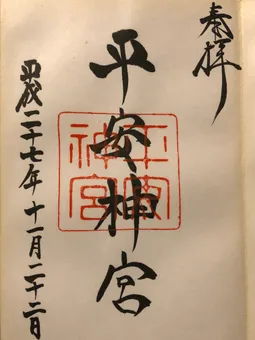 奉拝
平安神宮
平安神宮
平成二十七年十一月二十二日